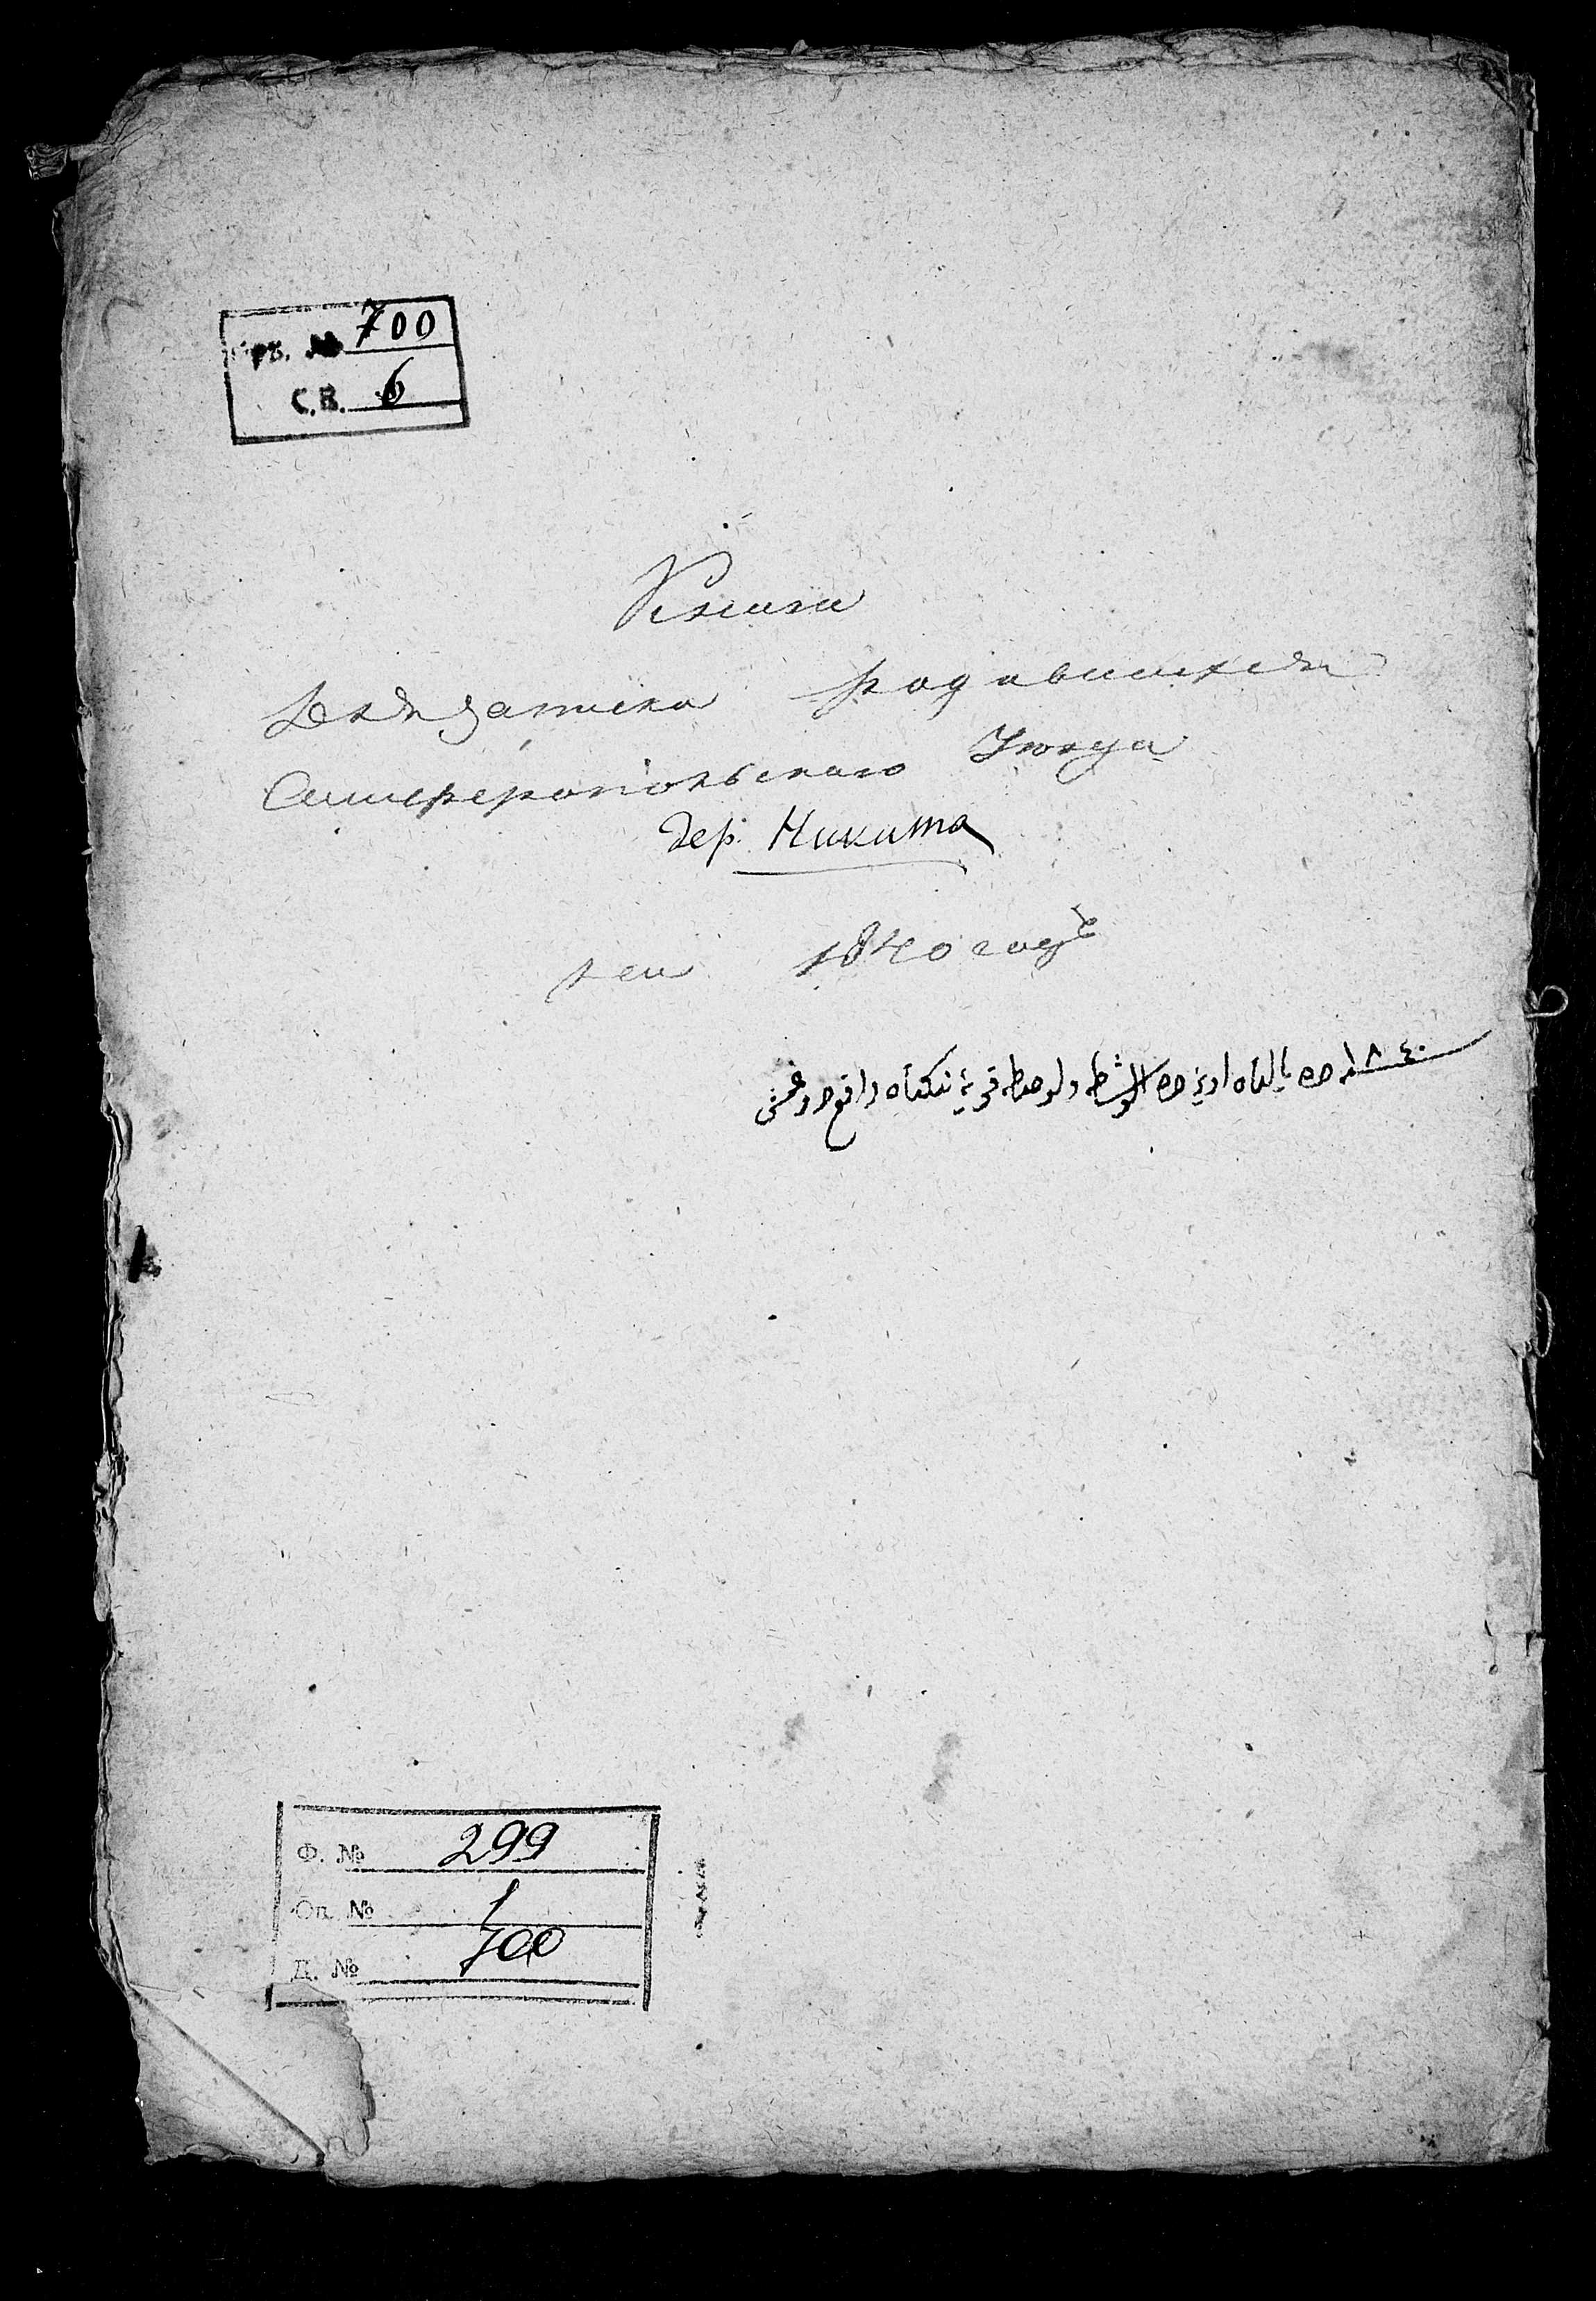 № 700
С.В. 6
Книга
Для записки родившихся
Симферопольскаго Уезда
дер. Никита
на 1840 годъ
١٨٤٠
Ф. № 299
Оп. № 1
Д. № 700